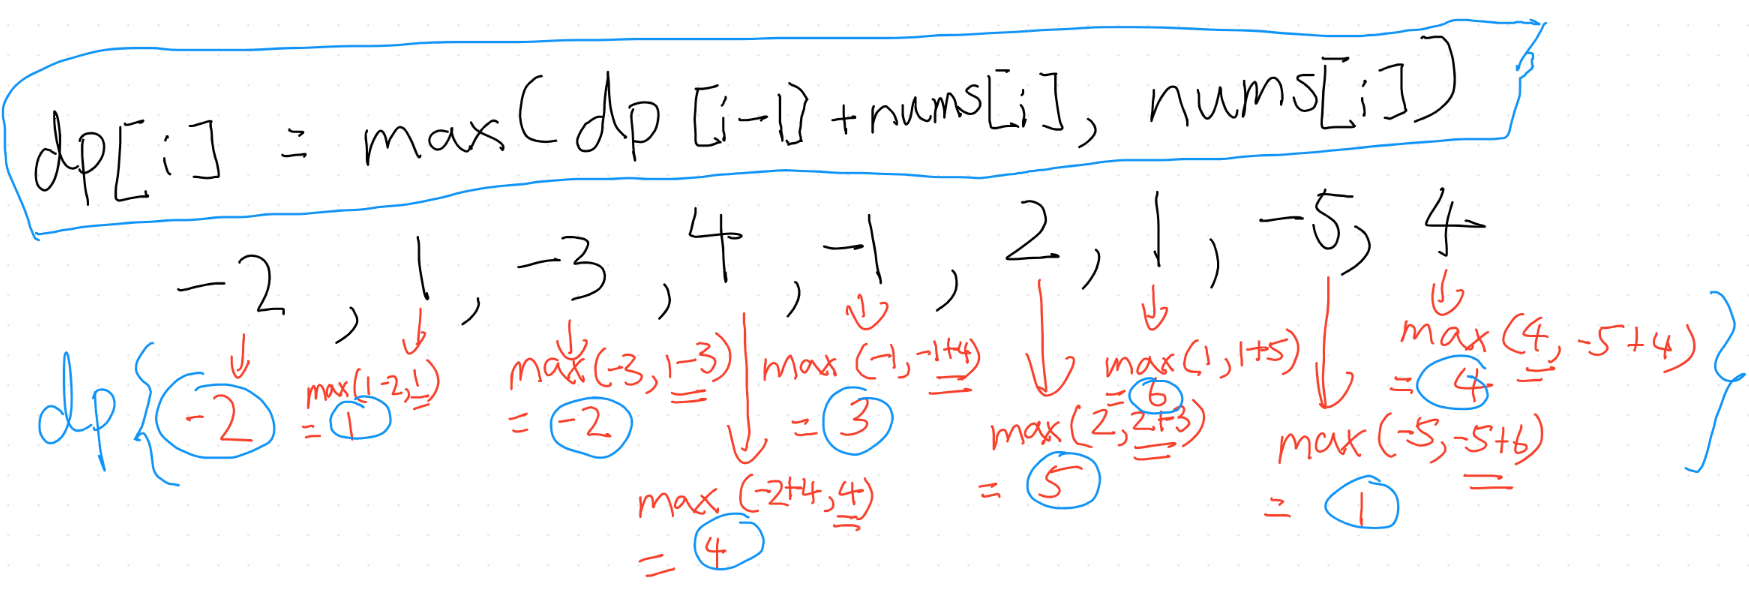 dp[i] = max(dp[i-1]+nums[i], nums[i])
-2, 1, -3, 4, -1, 2, 1, -5, 4
dp{
-2
max(1-2,1)
= 1
max(-3, 1-3)
= -2
max(-2+4,4)
= 4
max(-1, -1+4)
= 3
max(2,2+3)
= 5
max(1, 1+5)
= 6
max(-5,-5+6)
= 1
max(4, -5+4)
= 4
}